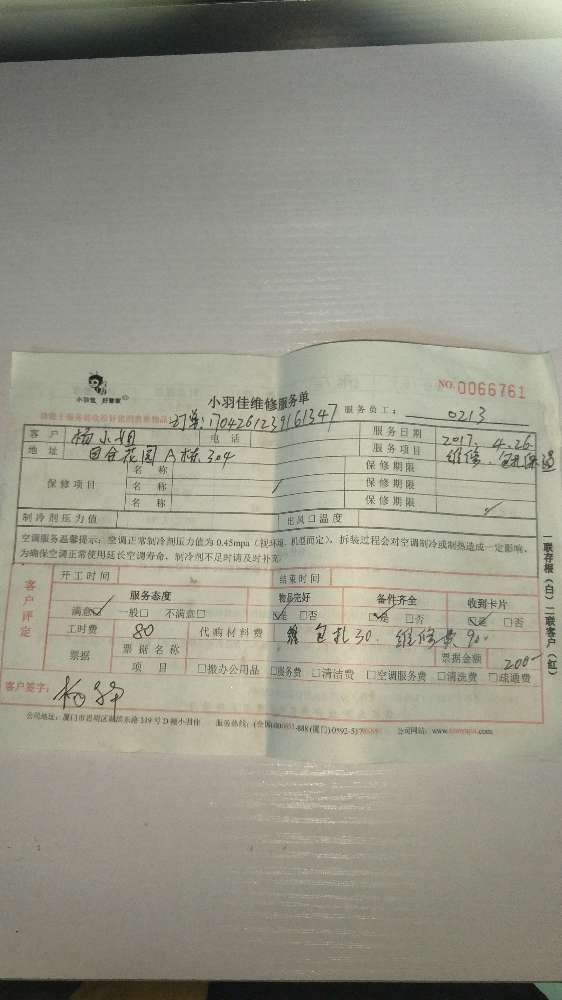 小羽佳 好管家
小羽佳维修服务单
NO.0066761
订单:1704261239161347
服务员工: 0213
客户 杨小姐 电话 服务日期 2017.4.26
地址 花园A栋304 服务项目 维修
保修项目 名称 保修期限
名称 保修期限
名称 保修期限
制冷剂压力值 出风口温度
空调服务温馨提示:空调正常制冷剂压力值为0.45mpa(视环境、机型而定),拆装过程会对空调制冷或制热造成一定影响,
为确保空调正常使用延长空调寿命,制冷剂不足时请及时补充
客户评定 开工时间 结束时间
服务态度 物品完好 备件齐全 收到卡片
满意☑ 一般□ 不满意□ ☑是 □否 ☑是 □否 ☑是 □否
工时费 80 代购材料费 包扎30. 维修费90.
票据 票据名称 票据金额 200-
项目 □搬办公用品 □服务费 □清洁费 □空调服务费 □清洗费 □疏通费
客户签字: 杨
公司地址:厦门市思明区 服务热线: 公司网站:www.
一联存根(白)二联客户(红)